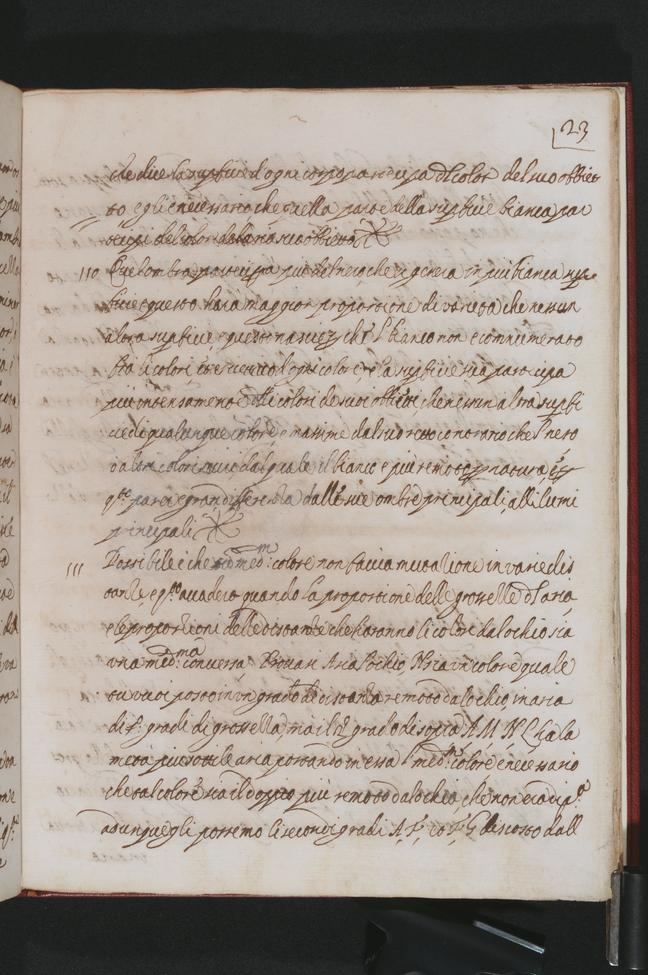 23
che dice la superficie d'ogni corpo participa del color del suo obbiet
to egli è necessario che quella parte della superficie bianca par
tecipi del color dell'aria suo obbietto
110 Quel ombra participa più del nero che si genera in più bianca sup
ficie e questo hara maggior proportione di varietà che nessun
altra superficie e questo nasce che 'l bianco non è connumerato
fra li colori, et è ricettivo d'ogni colore, e la superficie sua participa
più intensamente delli colori de suoi obbietti che nessun altra superfi
cie di qualunque colore, e massime dal suo retto contrario che 'l nero
o altri colori scuri dal quale il bianco è più remoto per natura, e per
q.sto pare gran differenza dalle sue ombre principali alli lumi
principali
111 Possibile è che un med.mo colore non faccia mutatione in varie dis
tantie e q.sto accadera quando la proportione delle grossezze dell'aria,
e le proportioni delle distantie che haranno li colori dal ochio sia
una med.ma conversa. Provasi A sia l'ochio, H sia un colore quale
tu vuoi posto in un grado di distantia remoto dal ochio in aria
di 4 gradi di grossezza, ma il 2º grado di sopra A M N L ha la
metà più sottile aria portando in essa 'l med.mo colore è necessario
che tal colore sia il doppio più remoto dal ochio che non era di p.ª
adunque gli porremo li secondi gradi A F, et F G discosto dall